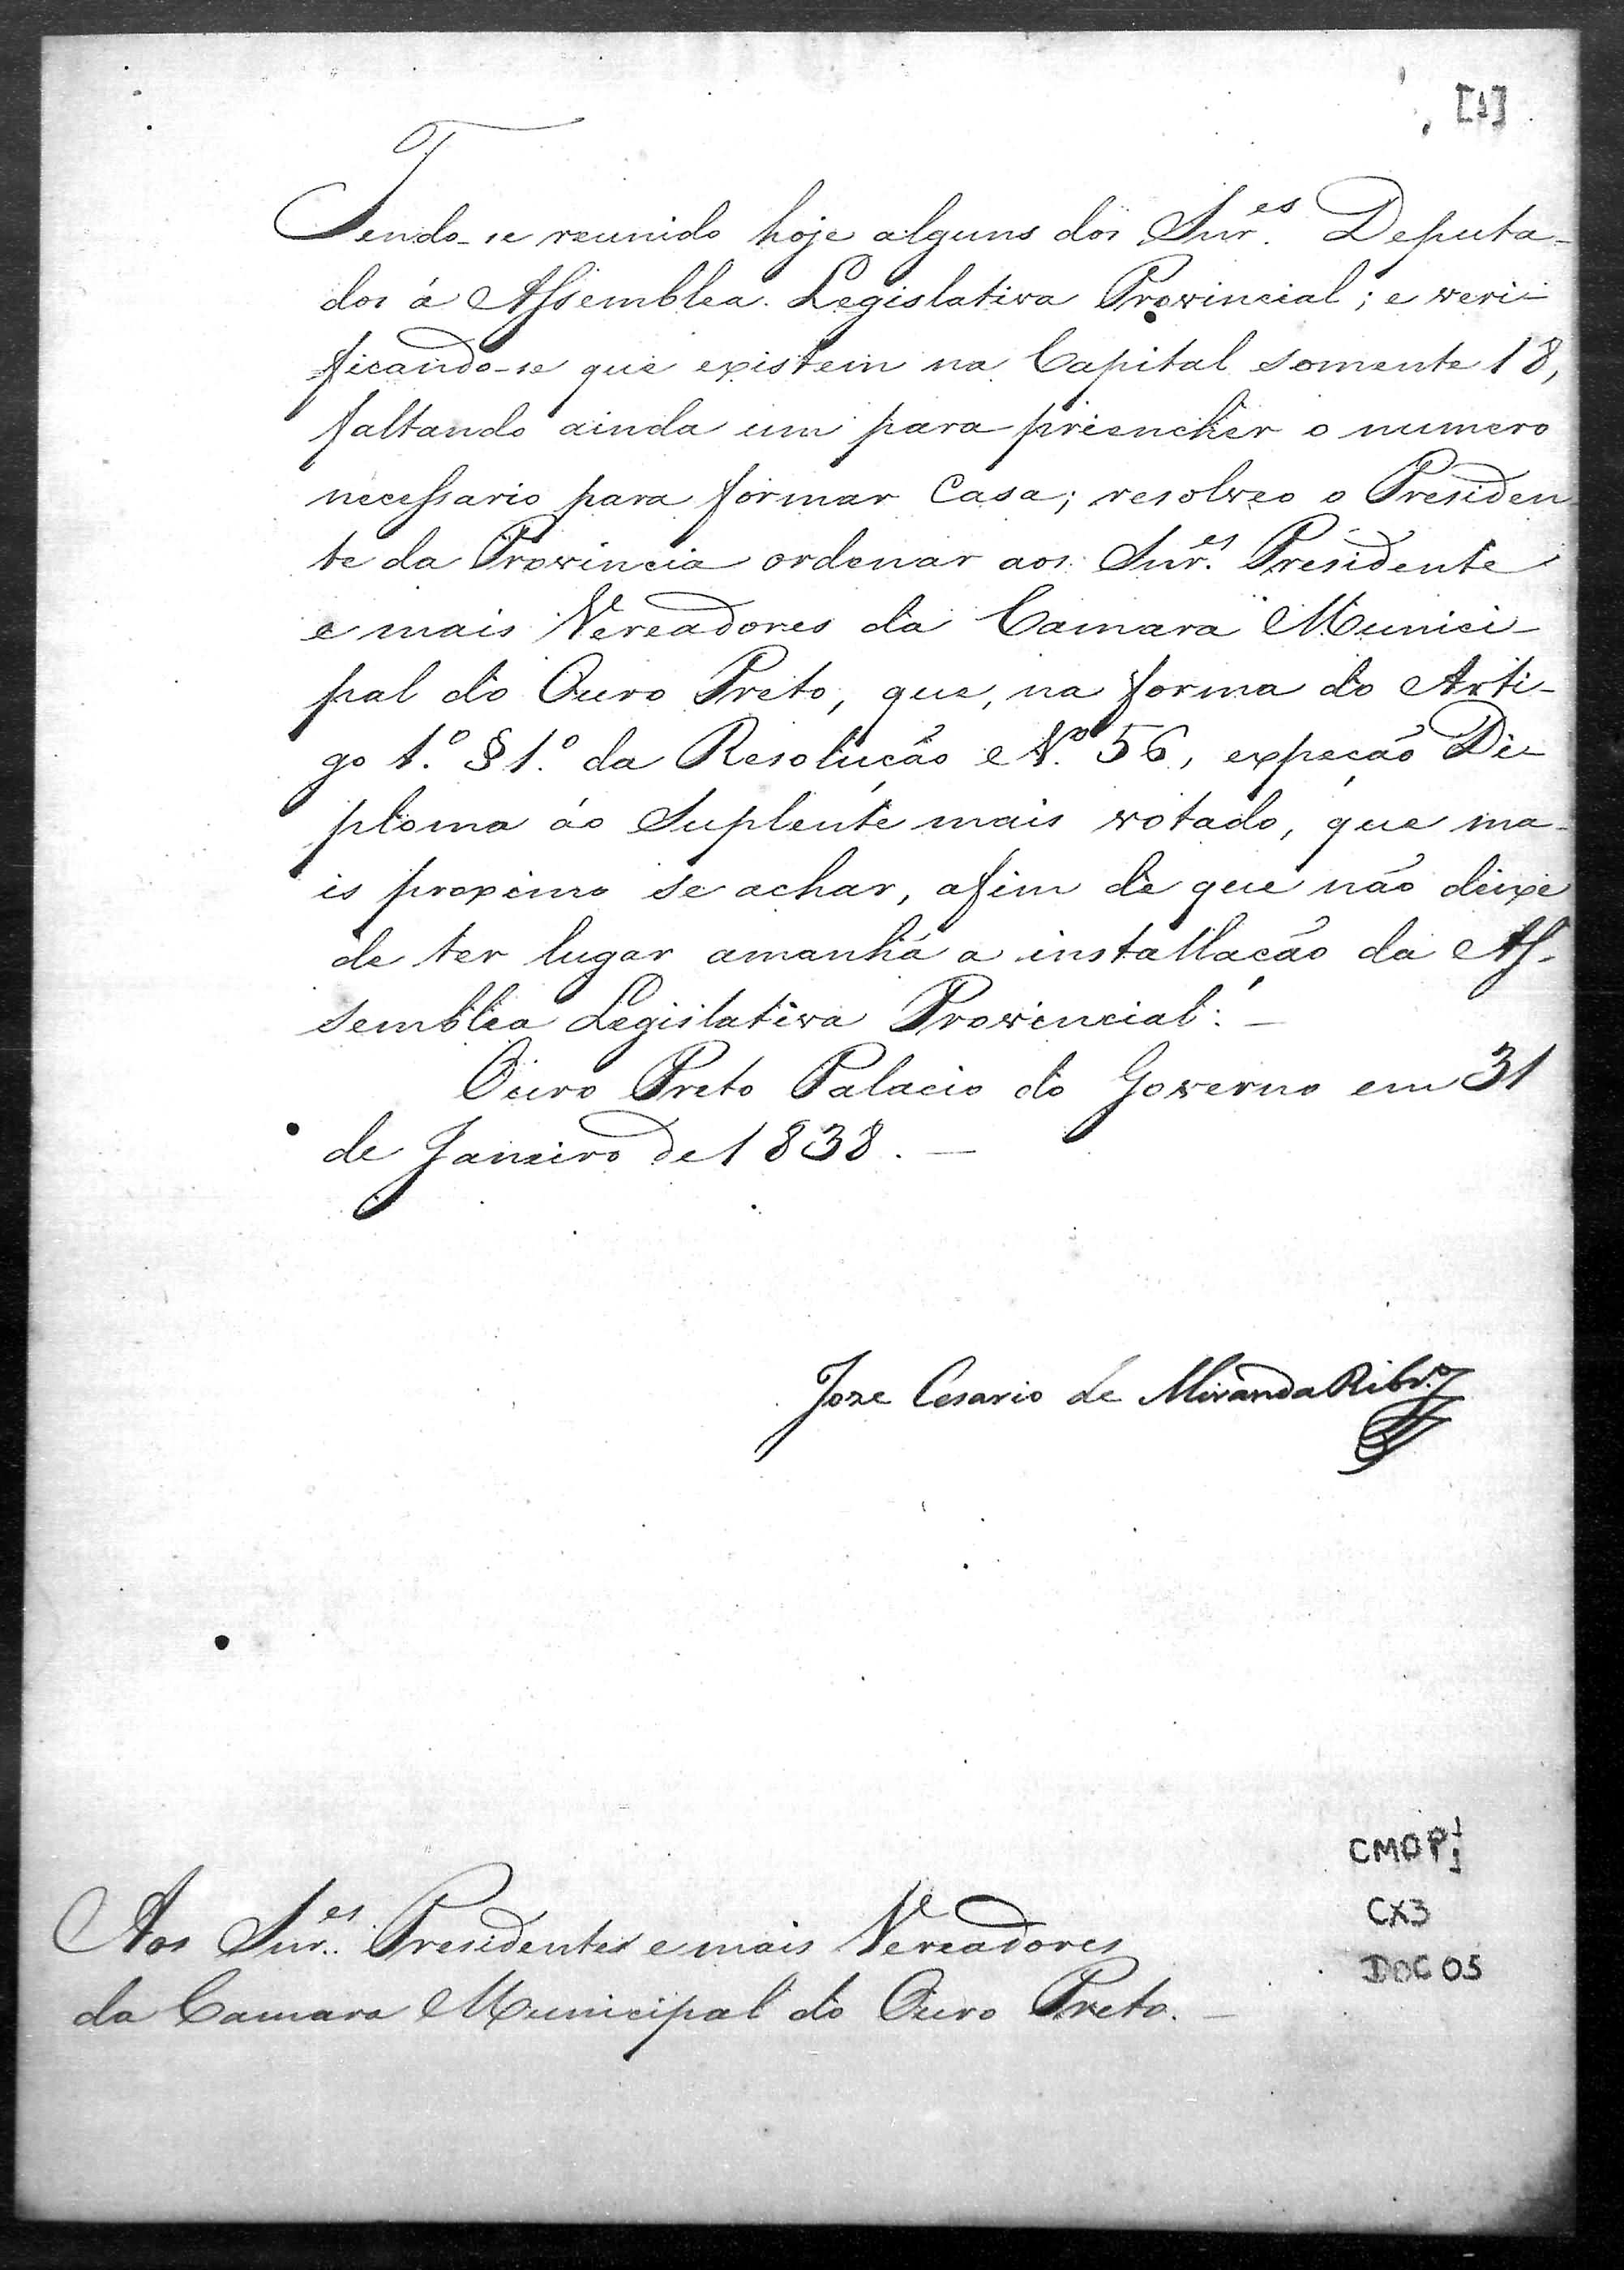 [1]
Tendo-se reunido hoje alguns dos Snr.es Deputa-
dos á Assemblea Legislativa Provincial; e veri-
ficando-se que existem na Capital somente 18,
faltando ainda um para preencher o numero
necessario para formar Casa; resolveo o Presiden
te da Provincia ordenar aos Snr.es Presidente
e mais Vereadores da Camara Munici-
pal do Ouro Preto, que, na forma do Arti-
go 1.º § 1.º da Resolução N.º 56, expeção Di-
ploma áo Suplente mais votado, que ma-
is proximo se achar, afim de que não deixe
de ter lugar amanhã a installação da As-
semblea Legislativa Provincial. —
Ouro Preto Palacio do Governo em 31
de Janeiro de 1838. —
Joze Cesario de Miranda Ribr.º
CMOP
CX3
DOC 05
Aos Snr.es Presidentes e mais Vereadores
da Camara Municipal do Ouro Preto. —